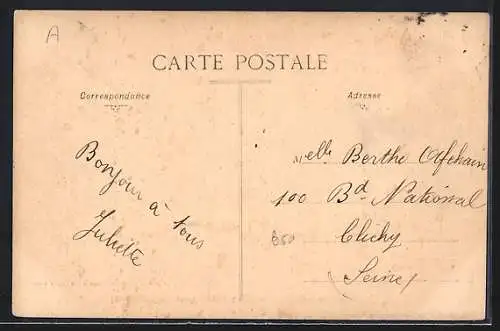 A
CARTE POSTALE
Correspondance
Adresse
Bonjour à tous
Juliette
Melle Berthe
100 Bd National
Clichy
Seine